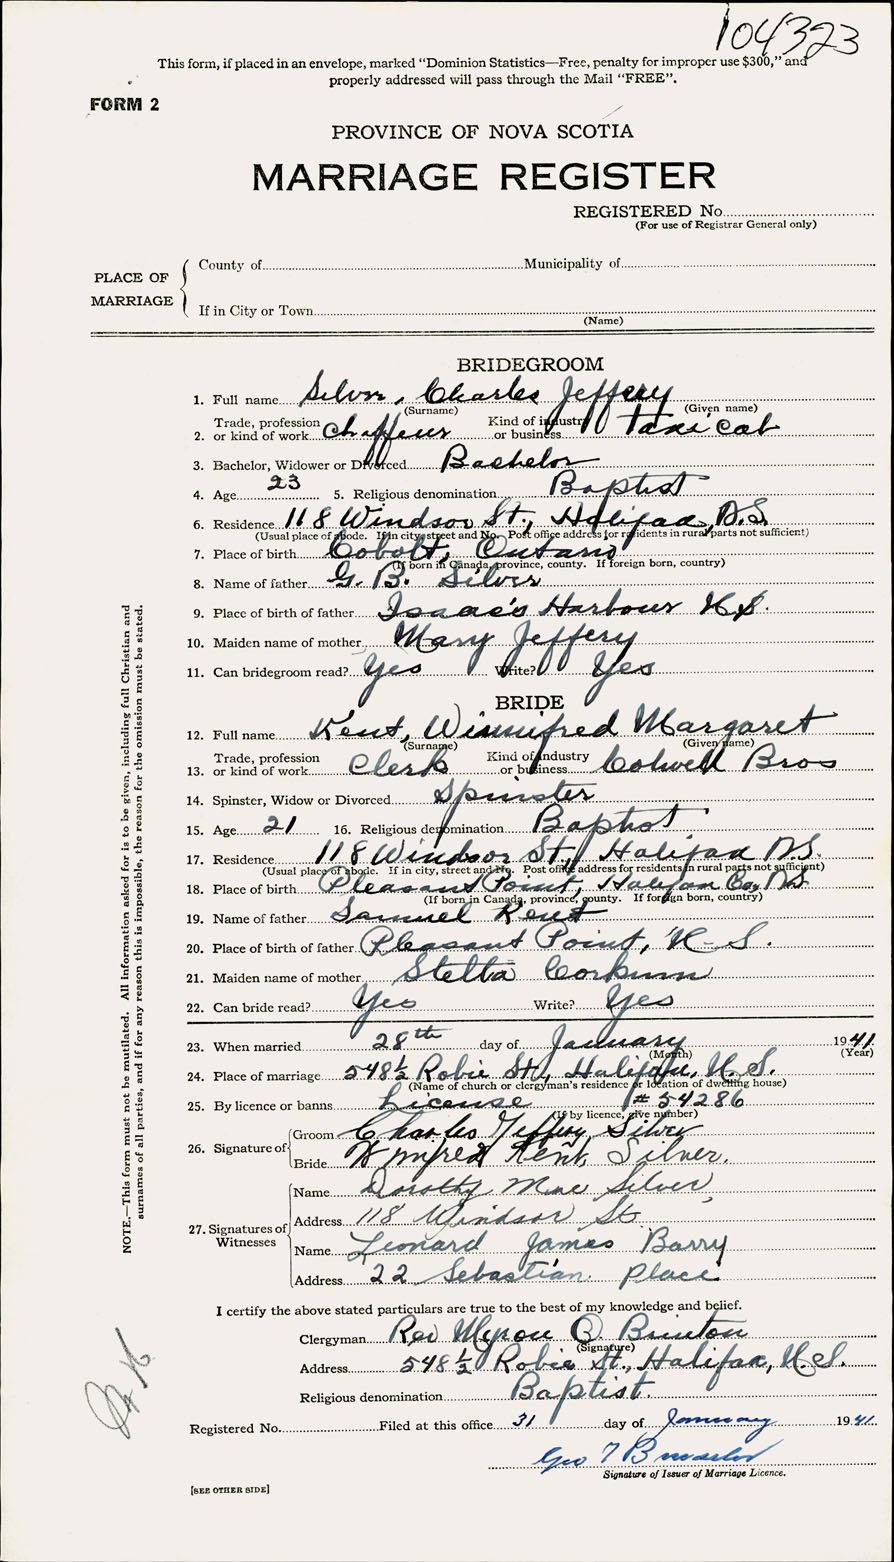 104323
This form, if placed in an envelope, marked "Dominion Statistics—Free, penalty for improper use $300," and
properly addressed will pass through the Mail "FREE".
FORM 2
PROVINCE OF NOVA SCOTIA
MARRIAGE REGISTER
REGISTERED No.
(For use of Registrar General only)
PLACE OF MARRIAGE
County of Municipality of
If in City or Town
(Name)
BRIDEGROOM
1. Full name Silver, Charles Jeffery
(Surname) (Given name)
2. Trade, profession or kind of work chaffeur Kind of industry or business taxi cab
3. Bachelor, Widower or Divorced Bachelor
4. Age 23 5. Religious denomination Baptist
6. Residence 118 Windsor St., Halifax, N.S.
(Usual place of abode. If in city, street and No. Post office address for residents in rural parts not sufficient)
7. Place of birth Cobolt, Ontario
(If born in Canada, province, county. If foreign born, country)
8. Name of father G. B. Silver
9. Place of birth of father Isaac's Harbour N.S.
10. Maiden name of mother Mary Jeffery
11. Can bridegroom read? Yes Write? Yes
BRIDE
12. Full name Kent, Winnifred Margaret
(Surname) (Given name)
13. Trade, profession or kind of work Clerk Kind of industry or business Colwell Bros
14. Spinster, Widow or Divorced Spinster
15. Age 21 16. Religious denomination Baptist
17. Residence 118 Windsor St., Halifax N.S.
(Usual place of abode. If in city, street and No. Post office address for residents in rural parts not sufficient)
18. Place of birth Pleasant Point, Halifax Co, N.S.
(If born in Canada, province, county. If foreign born, country)
19. Name of father Samuel Kent
20. Place of birth of father Pleasant Point, N.S.
21. Maiden name of mother Stella Corkum
22. Can bride read? Yes Write? Yes
23. When married 28th day of January 1941
(Month) (Year)
24. Place of marriage 548½ Robie St., Halifax, N.S.
(Name of church or clergyman's residence or location of dwelling house)
25. By licence or banns License # 54286
(If by licence, give number)
26. Signature of Groom Charles Jeffery Silver
Bride Winifred Kent Silver.
27. Signatures of Witnesses Name Dorothy Mae Silver
Address 118 Windsor St
Name Leonard James Barry
Address 22 Sebastian Place
I certify the above stated particulars are true to the best of my knowledge and belief.
Clergyman Rev Myron O. Brinton
(Signature)
Address 548½ Robie St., Halifax, N.S.
Religious denomination Baptist.
Registered No. Filed at this office 31 day of January 1941
Geo
Signature of Issuer of Marriage Licence.
[SEE OTHER SIDE]
NOTE.—This form must not be mutilated. All information asked for is to be given, including full Christian and
surnames of all parties, and if for any reason this is impossible, the reason for the omission must be stated.